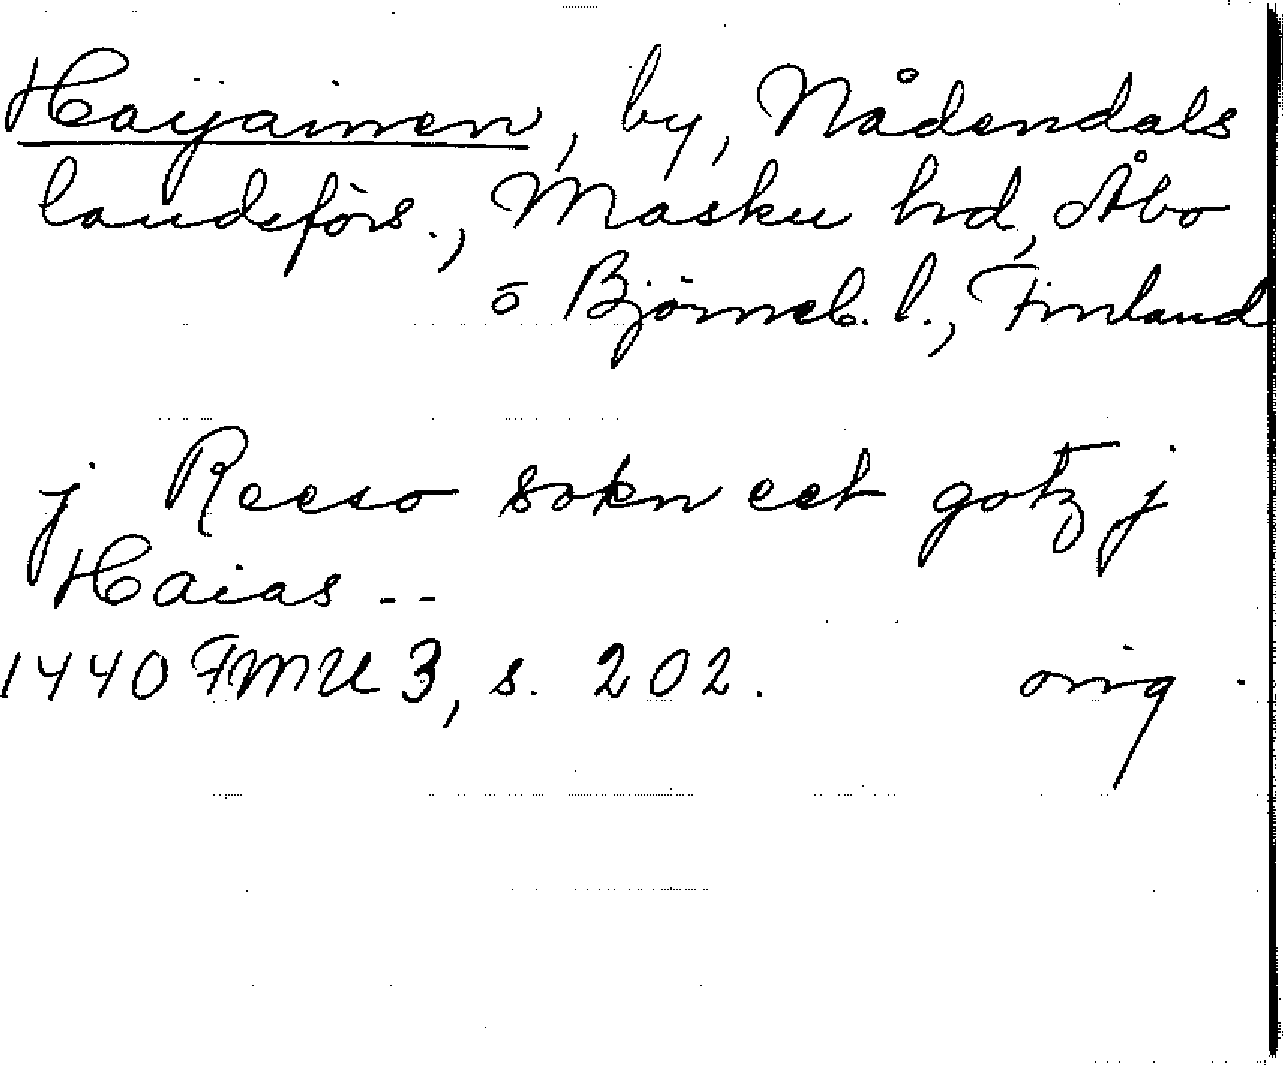 Haijainen, by, Nådendals
landsförs., Masku hd, Åbo
o Björneb. l., Finland
j Reeso sokn eet gotz j
Haias --
1440 FMU 3, s. 202. orig.